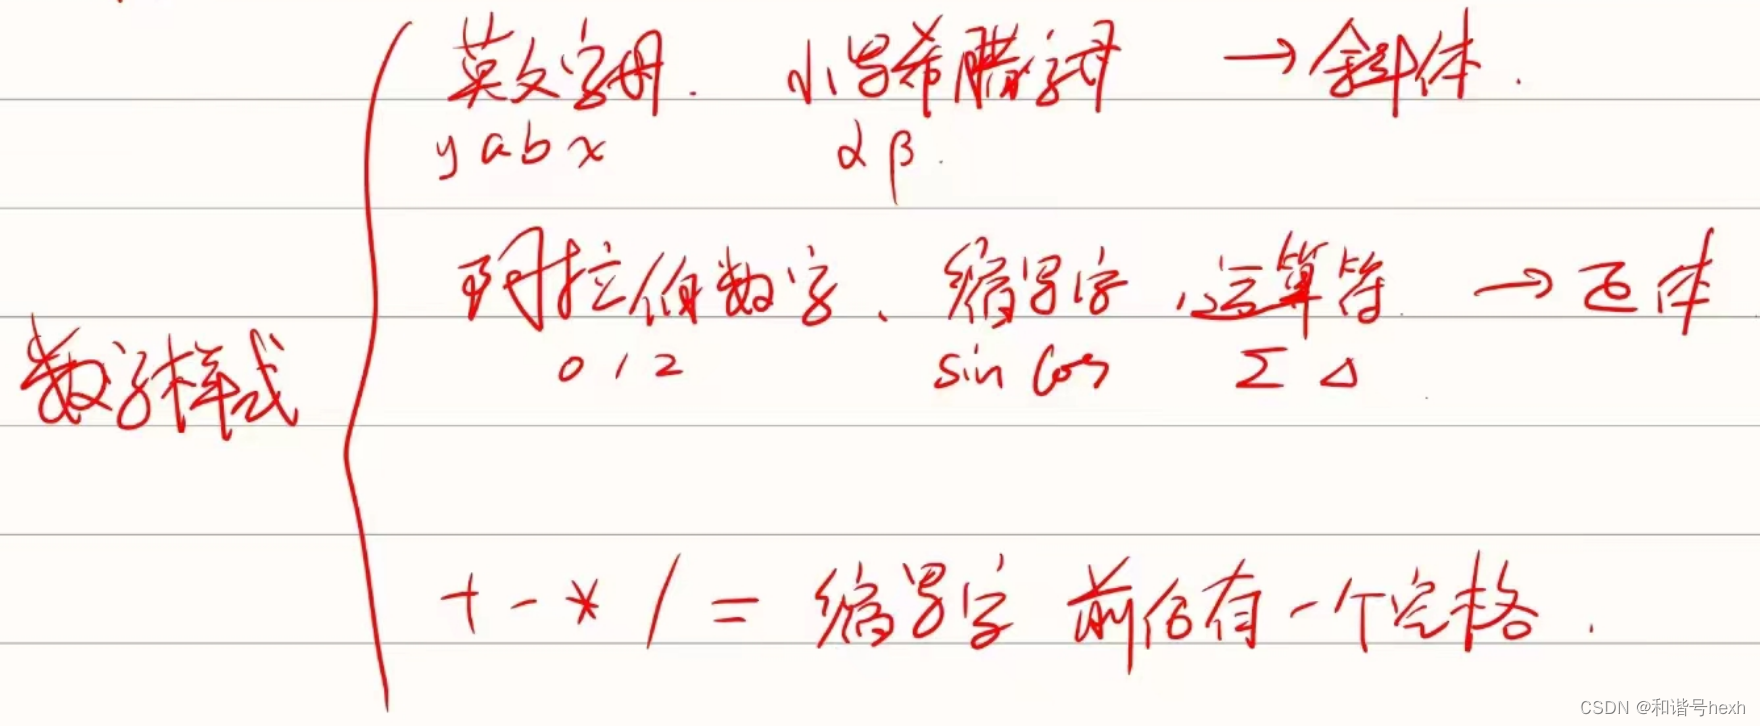 英文字母. 小写希腊字母 →斜体.
y a b x α β.
阿拉伯数字、缩写字、运算符. →正体
0 1 2 sin cos Σ Δ
数学样式
+ - * / = 缩写字 前后有一个空格.
CSDN @和谐号hexh